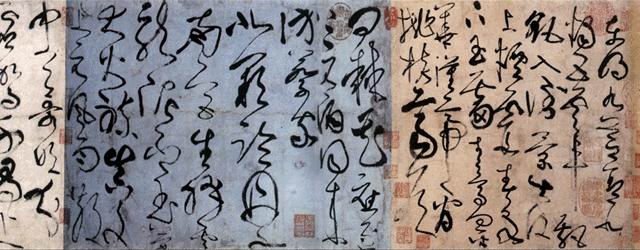 東明九芝蓋北
燭五雲車飄
飖入倒景出沒
上煙霞春泉
下玉霤青鳥向金
華漢帝看
桃核齊侯
問棘花應
逐上元酒同來
訪蔡家
北闕臨丹水
南宮生絳雲
龍泥印玉簡
大火煉真文
上元風雨散
中天歌吹分